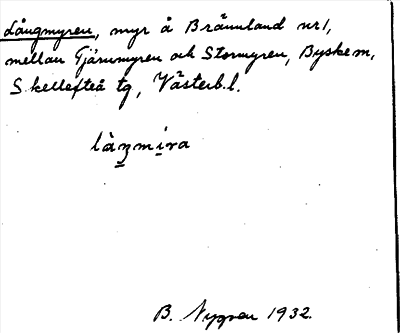 Långmyren, myr å Brännland nr 1,
mellan Tjärnmyren och Stormyren, Byske sn,
Skellefteå tg, Västerb. l.
làŋmíra
B. Nygren 1932.